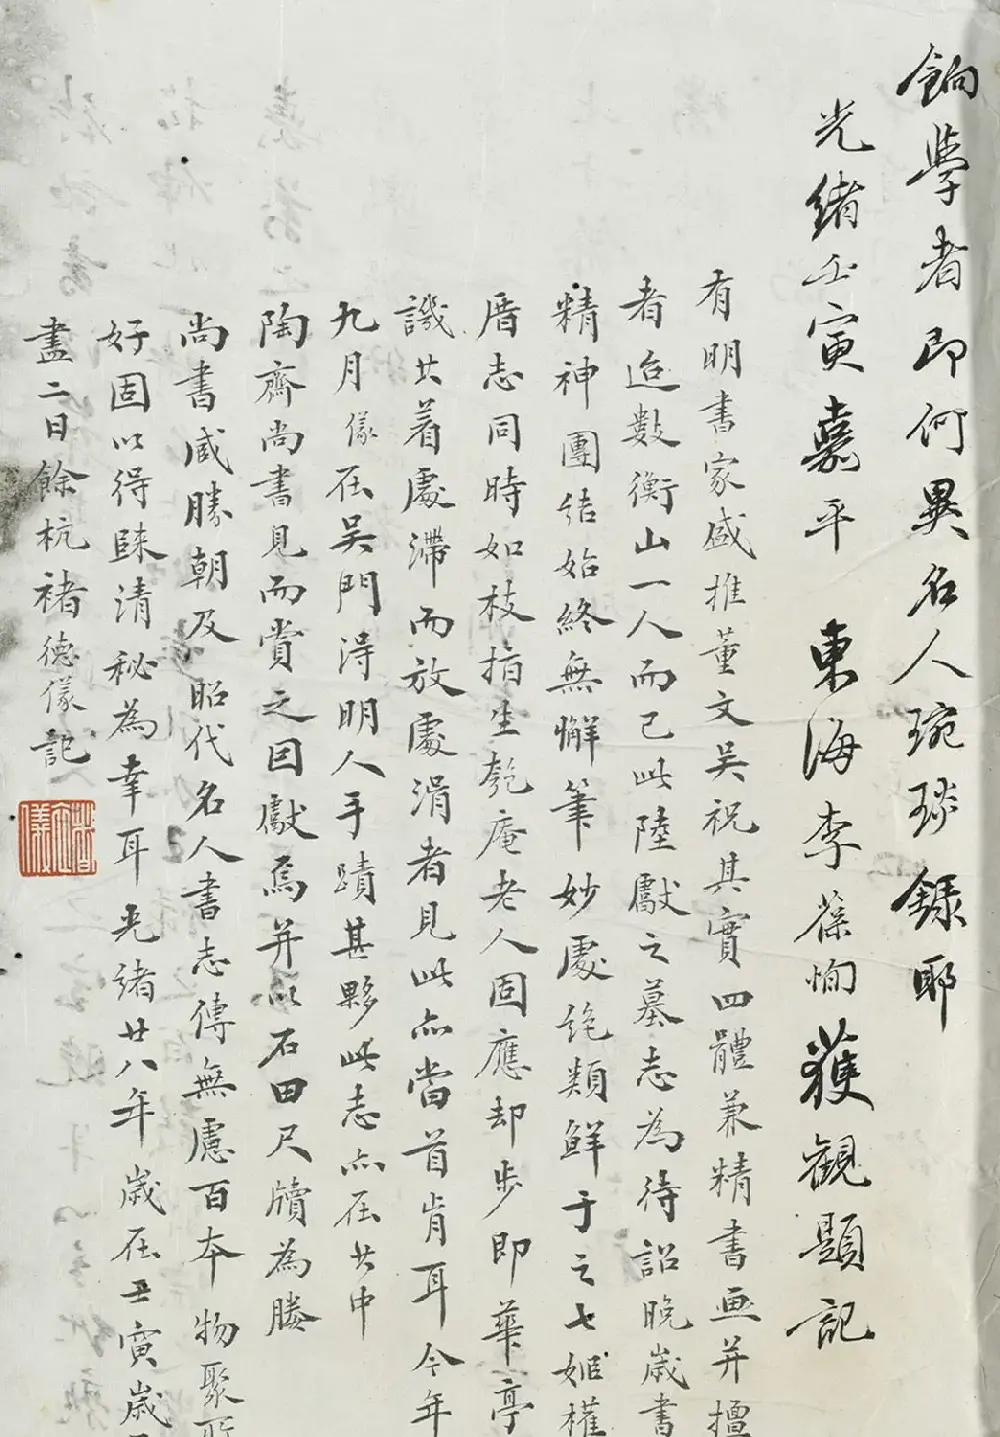 餉學者即何異名人琬琰錄耶
光緒壬寅嘉平東海李葆恂獲觀題記
有明書家盛推董文吳祝其實四體兼精書画并擅
者追數衡山一人而已此陸獻之墓志為待詔晚歲書
精神團結始終無懈筆妙處絶類鮮于之七姬權
厝志同時如枝指生匏庵老人固應却步即華亭
譏其着處滯而放處涓者見此亦當首肯耳今年
九月儀在吴門得明人手蹟甚夥此志亦在其中
陶齋尚書見而賞之因獻焉并以石田尺牘為媵
尚書咸勝朝及昭代名人書志傳無慮百本物聚所
好固以得隸清秘為幸耳光緒廿八年歲在壬寅歲
盡二日餘杭褚德儀記